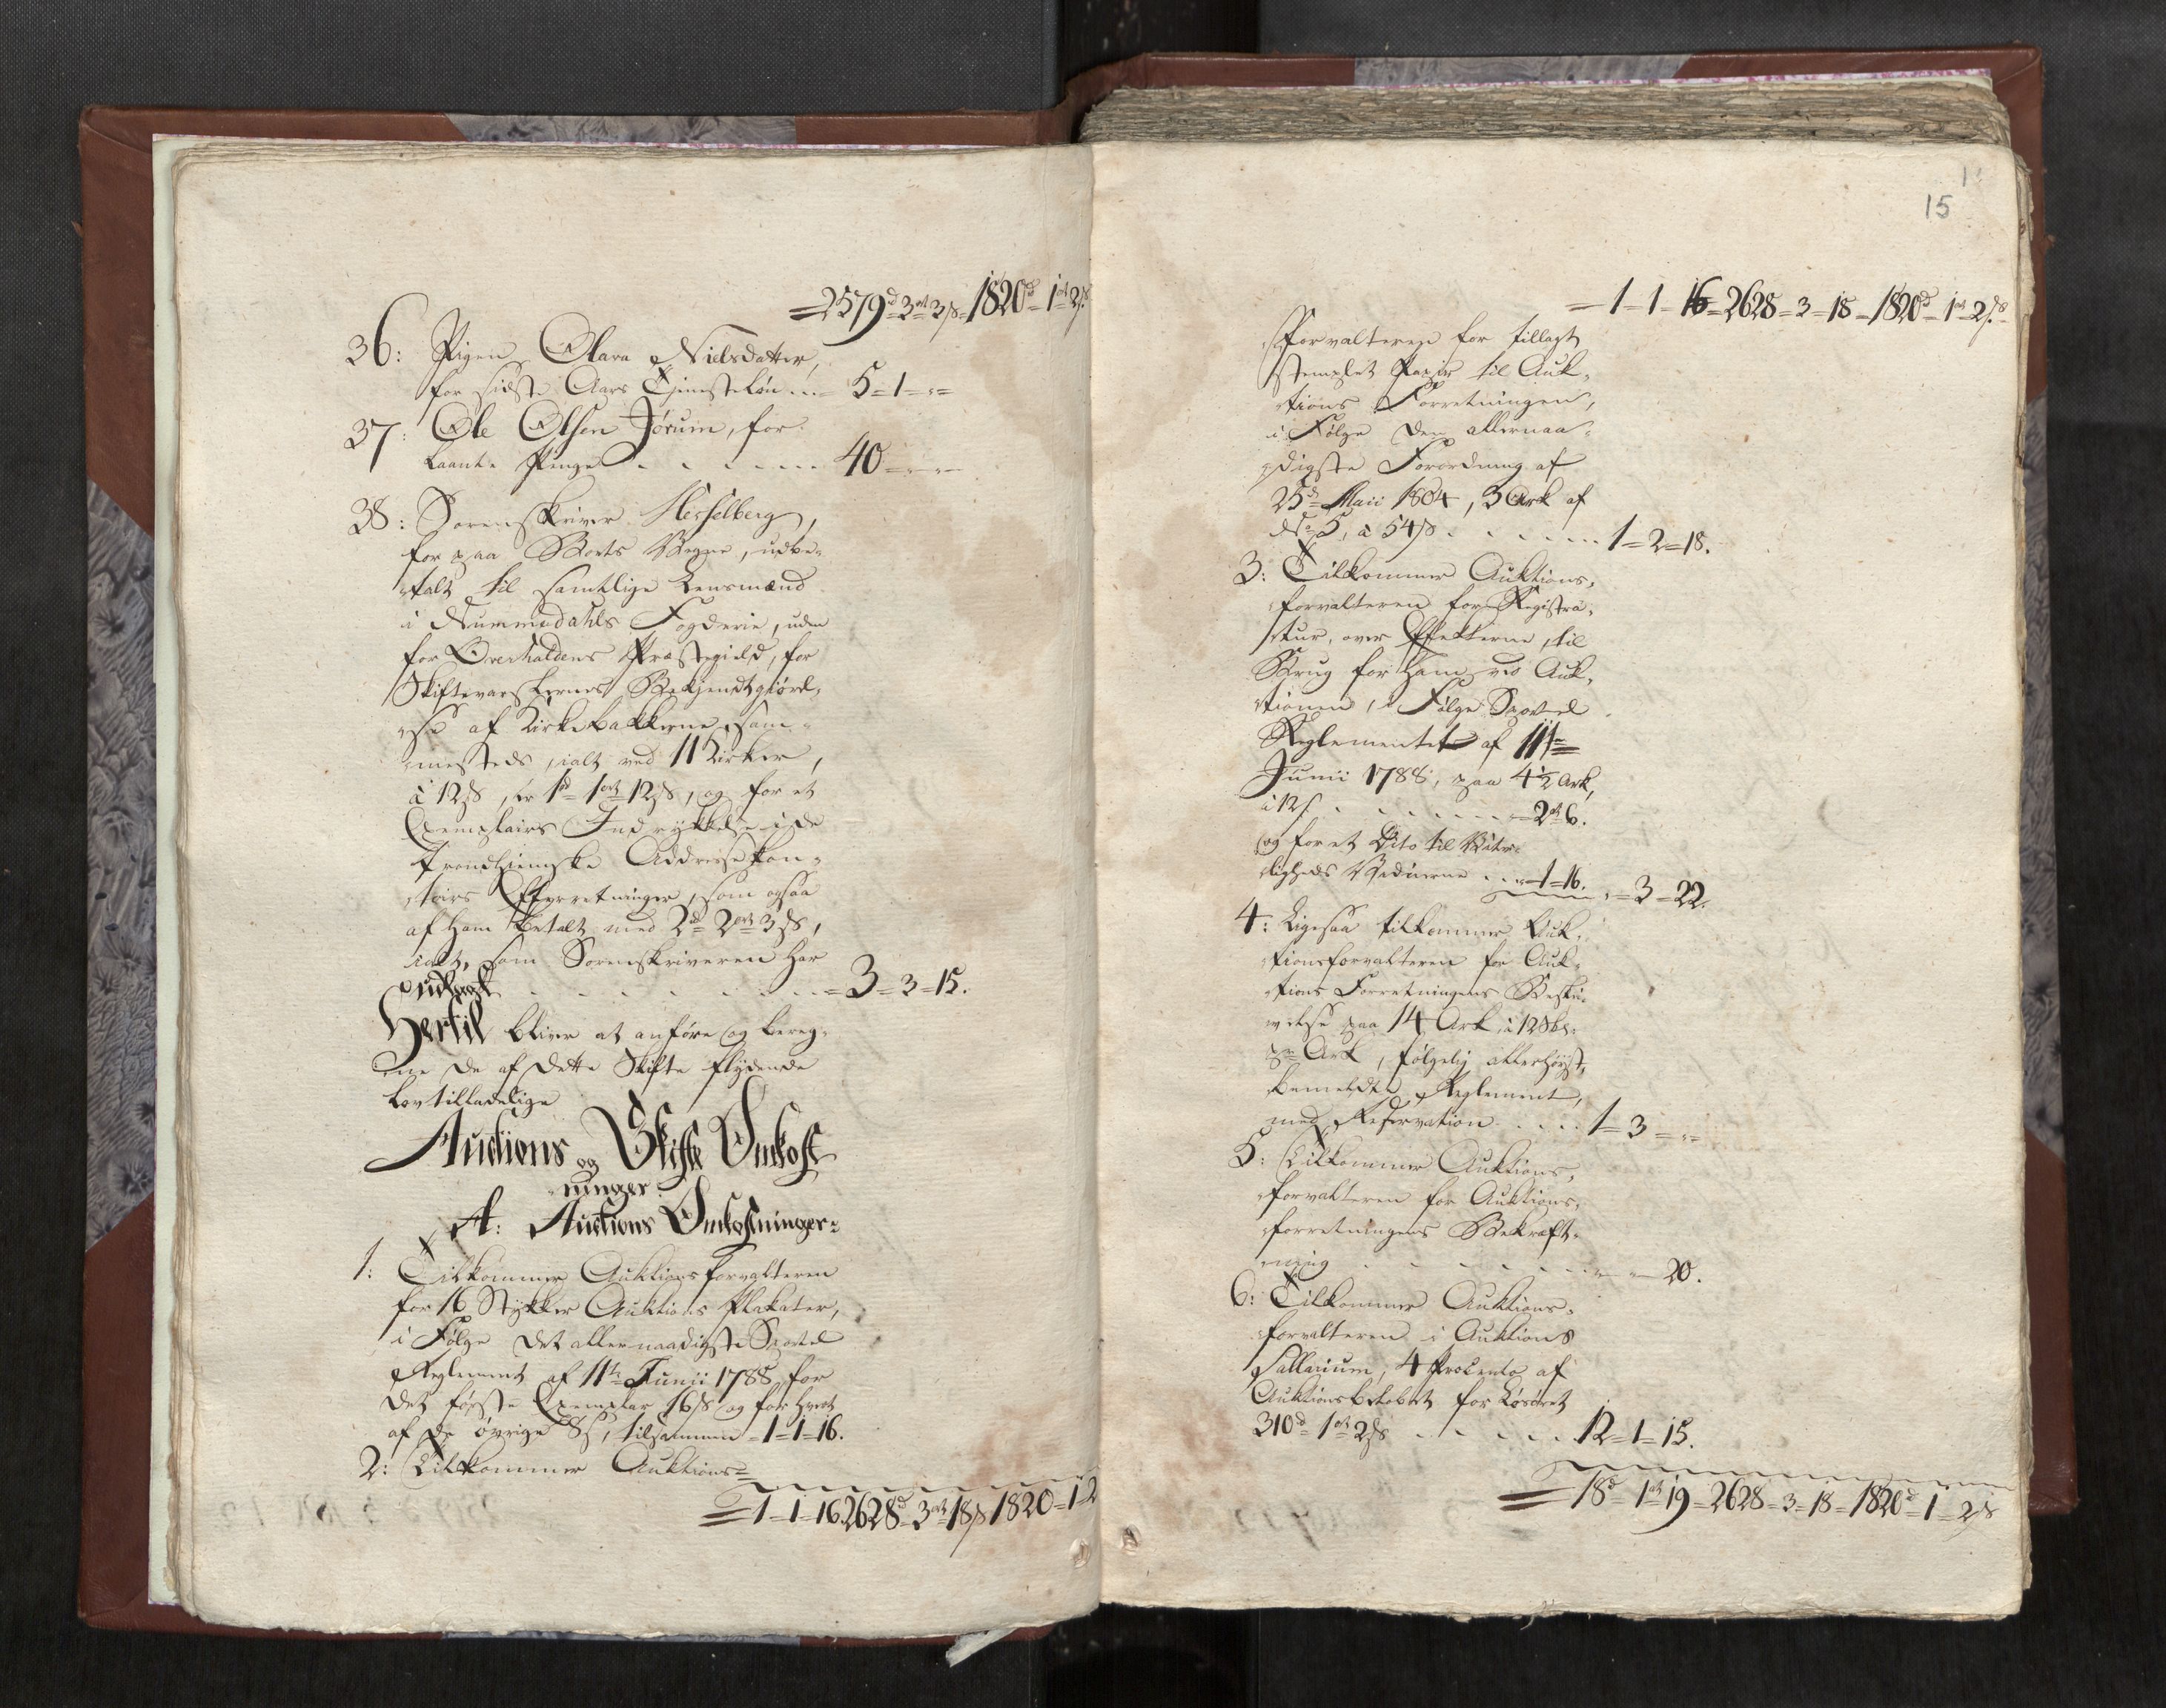 =2579d=3ort=3ß=1820d=1ort=2ß
36: Pigen Olava Nielsdatter,
for sidste Aars Tjenesteløn ... 5=1="=
37: Ole Olsen Jørum, for
laante Penge . . . . . . 40="="=
38: Sorenskriver Hesselberg,
for paa Boets Vegne, udbe-
talt til samtlige Lensmænd
i Nummedahls Fogderie, uden
for Overhaldens Præstegield, for
Skiftevarslernes Bekjendtgiørel-
se af Kirkebakkerne sam-
mesteds, ialt ved 11 Kirker,
à 12ß, er 1d 1ort 12ß, og for et
Exemplairs Indrykkelse i de
trondhiemske Addressekon-
toirs Efterretninger, som ogsaa
af ham betalt med 2d 2ort 3ß,
ialt, som Sorenskriveren har
udlagt . . . . . . . =3=3=15.
Hertil bliver at anføre og bereg-
ne de af dette Skifte flydende
lovtilladelige
Auctions og Skifte Omkost-
ninger.
A: Auctions Omkostninger:
1: Tilkommer Auktionsforvalteren
for 16 Stykker Auktions Plakater,
i Følge det allernaadigste Sportel
Reglement af 11te Junii 1788, for
det første Exemplar 16ß og for hvert
af de øvrige 8ß, tilsammen =1=1=16.
2: Tilkommer Auktions=
=1=1=16. 2628d=3ort=18ß 1820=1=2
15
=1=1=16=2628=3=18=1820d=1ort=2ß
forvalteren for tillagt
stemplet Papir til Auk-
tions Forretningen,
i Følge den allernaa-
digste Forordning af
25de Maii 1804, 3 Ark af
No 5, à 54ß . . . . . . 1=2=18.
3: Tilkommer Auktions-
forvalteren for Registra-
tur, over Effekterne, til
Brug for ham ved Auk-
tionen, i Følge Sportel
Reglementet af 11te
Junii 1788, paa 4½ Ark,
à 12ß . . . . . . . =2ort 6.
og for et Dito til Vitter-
ligheds Vidnerne . . . =1=16. "=3=22.
4: Ligesaa tilkommer Auk-
tionsforvalteren for Auk-
tions Forretningens Beskri-
velse paa 14 Ark, à 12 Sk.
pr. Ark, følgelig allerhøist-
bemeldte Reglement,
med Reservation . . . . 1=3="=
5: Tilkommer Auktions-
forvalteren for Auktions-
forretningens Bekræft-
ning . . . . . . "="=20.
6: Tilkommer Auktions-
forvalteren i Auktions
Sallarium, 4 Procento af
Auktionsbeløbet for Løsøret
310d 1ort 2ß . . . . . 12=1=15.
=18d=1ort 19=2628=3=18=1820d=1=2ß